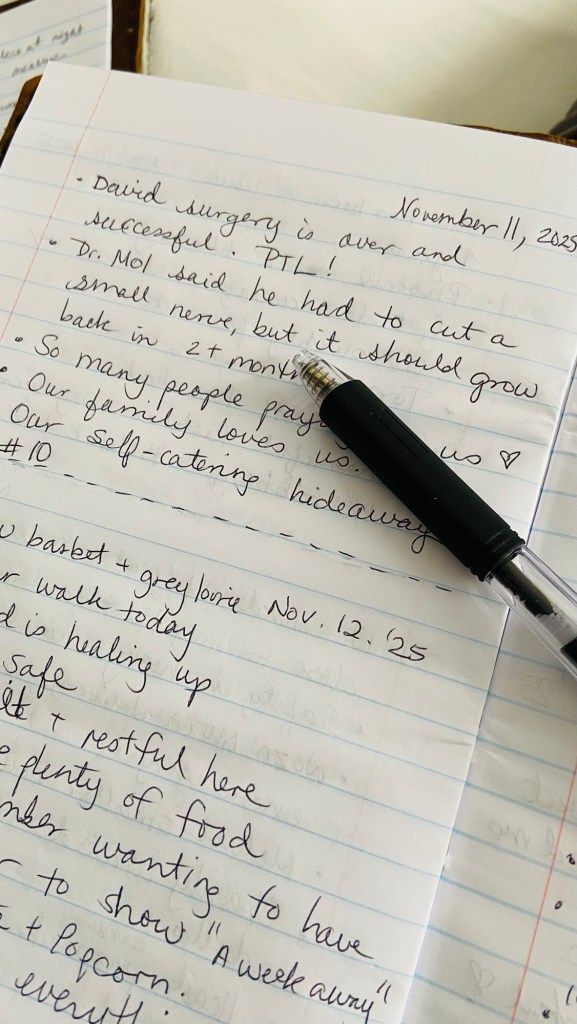 at night
November 11, 2025
• David surgery is over and
successful. PTL!
• Dr. Mol said he had to cut a
small nerve, but it should grow
back in 2+ month
• So many people pray us ♡
• Our family loves us.
Our self-catering hideaway
#10
barbet + grey lourie Nov. 12. '25
walk today
is healing up
safe
+ restful here
plenty of food
wanting to have
to show "A week away"
+ Popcorn.